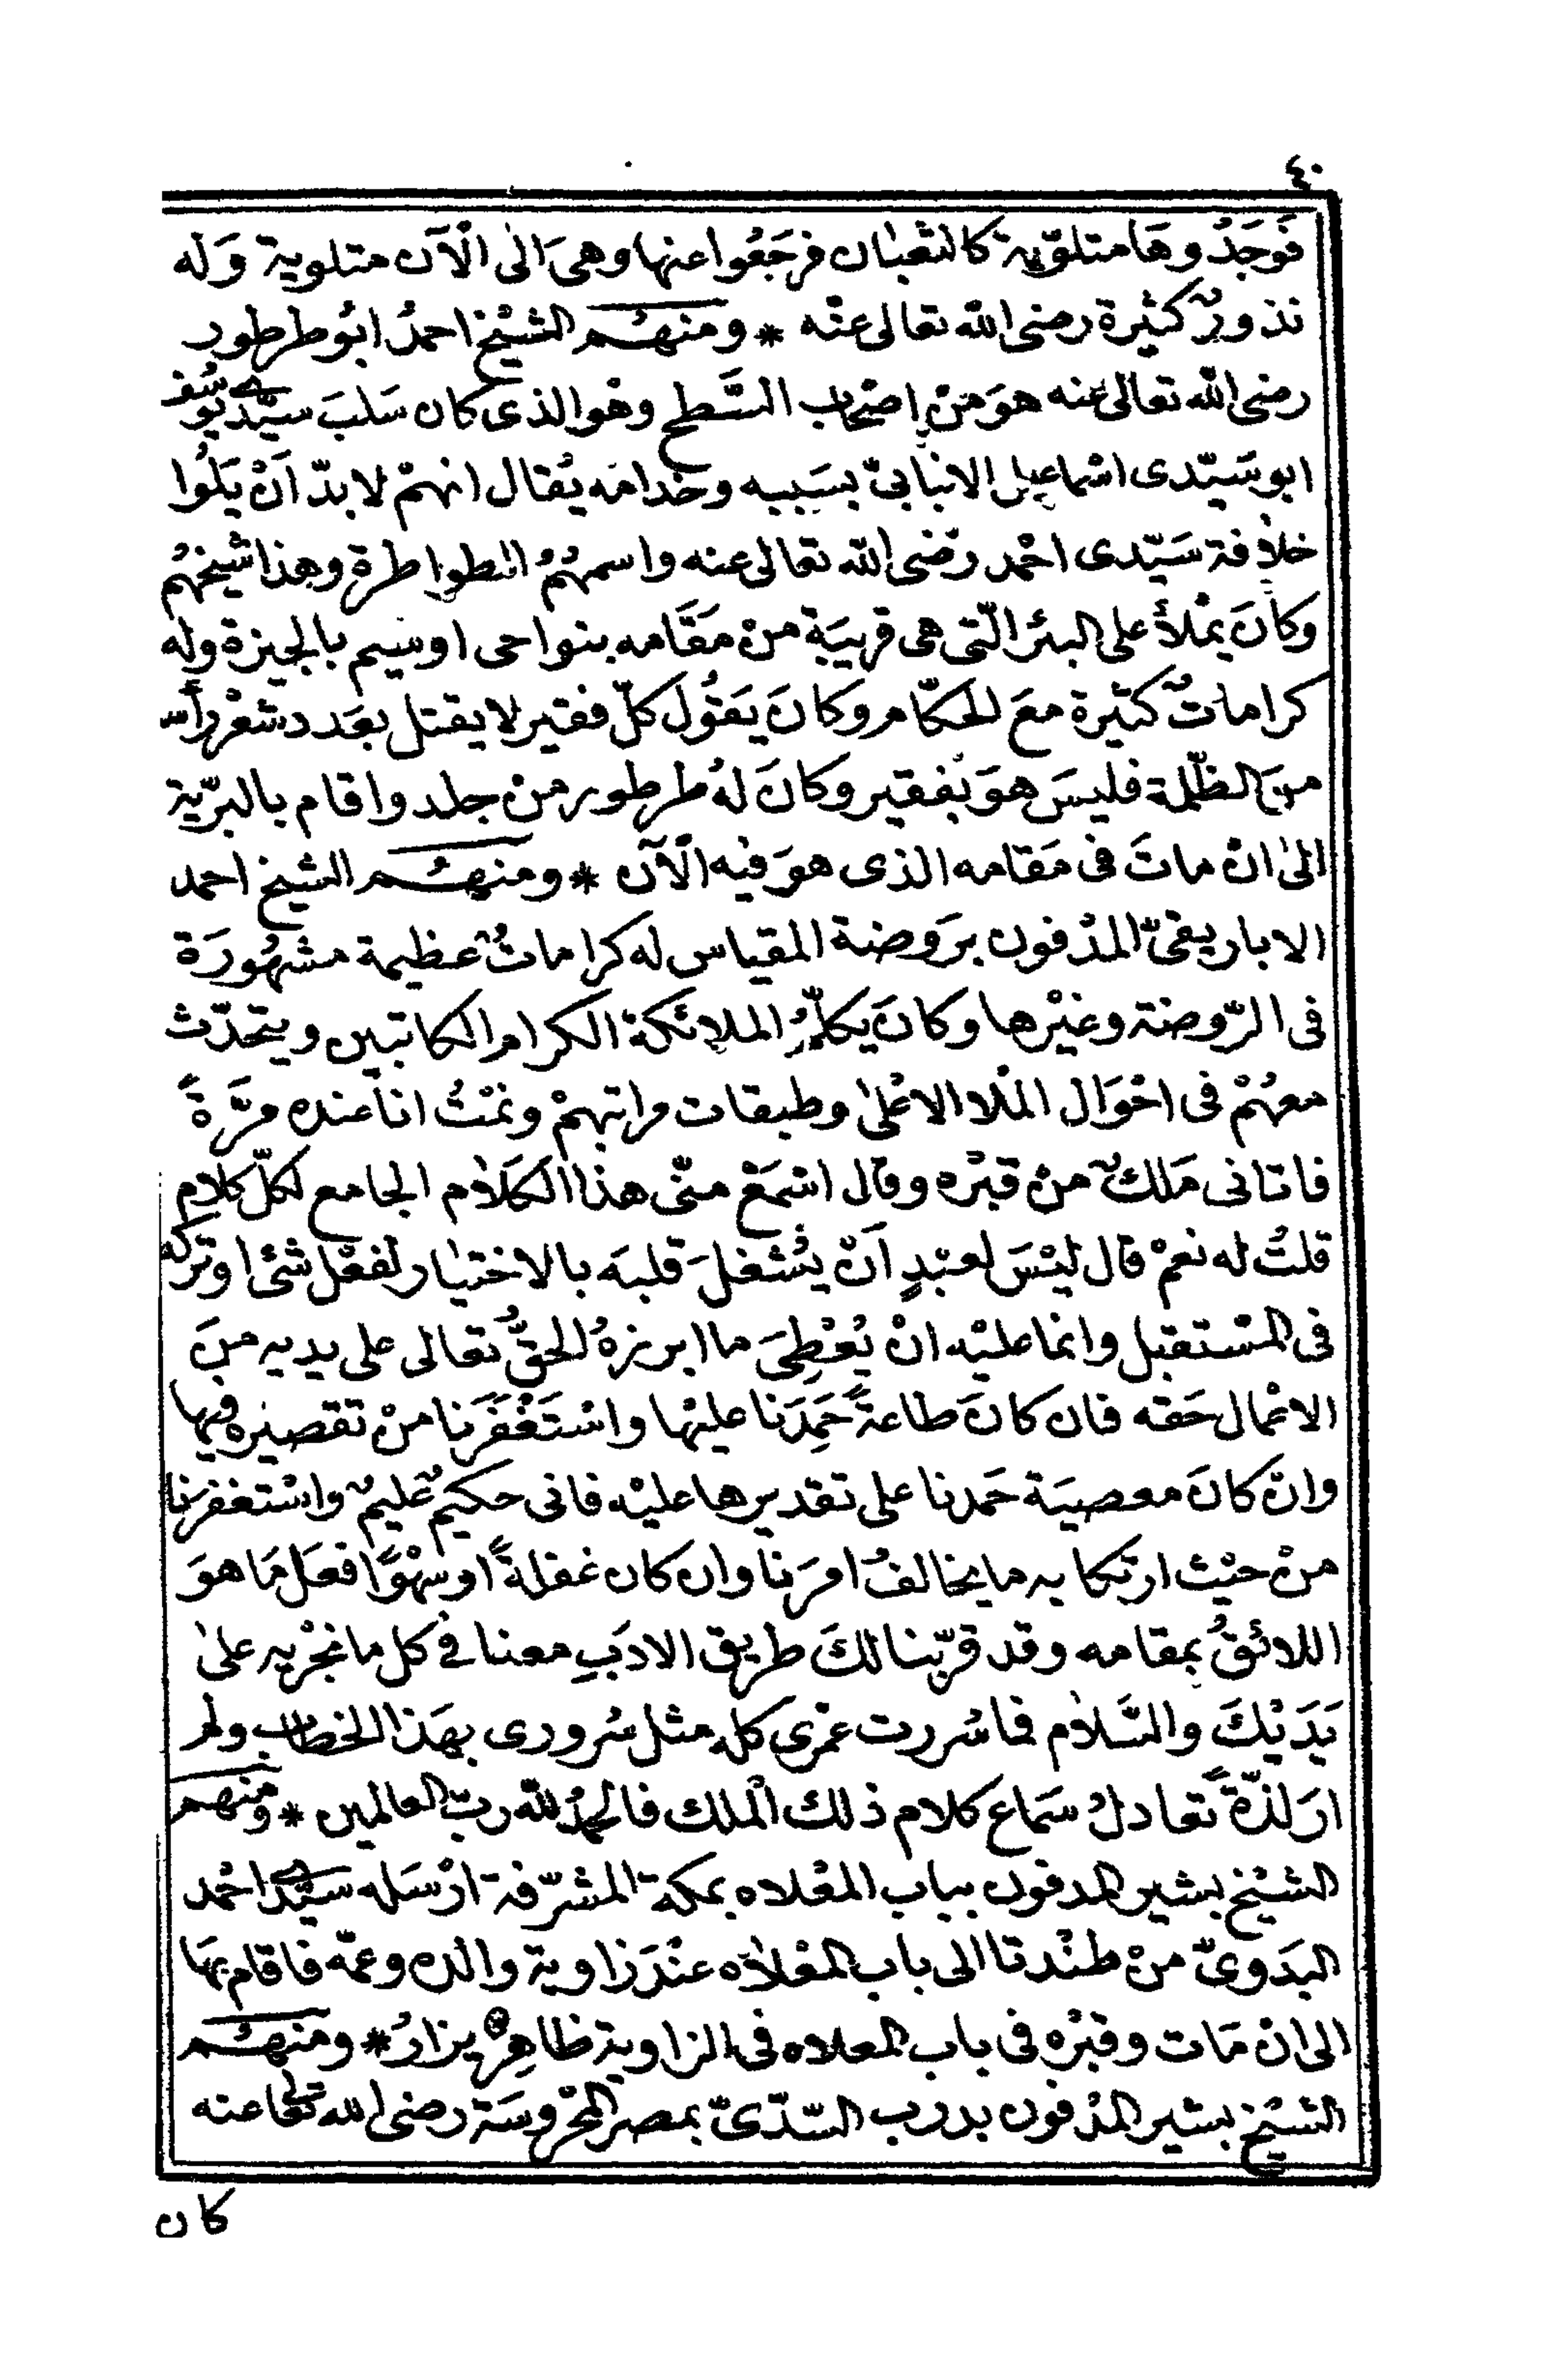 ٤٠
فَوَجَدُوهَا متلوّية كالثعبان فرجَعُوا عنها وهىَ الى الْآن متلوية وَله
نذورٌ كثيرة رضى الله تعالى عنْه * ومنهُم الشيْخ احمدُ ابُو طرطور
رضى الله تعالى عنه هوَ منْ اصْحاب السَّطح وهْو الذى كان سَلبَ سيّدى يوسُف
ابو سَيّدى اسْماعيل الانبابىّ بسَببه وخدامَه يُقال انهمْ لا بدّ اَنْ يَلُوا
خلافة سَيّدى احْمد رَضى الله تعالى عنه واسمهُمُ الطواطرة وهذا شيخهُم
وكانَ يمْلأ على البئر الّتى هى قريبَة منْ مَقَامه بنواحى اوسيم بالجيزة وله
كراماتٌ كثيرة معَ الحكّام وكانَ يَقُول كلّ فقير لا يقتل بعَدد شعْر رأسه
منَ الظّلمة فليسَ هوَ بُفقير وكانَ لهُ طرطور منْ جلد واقام بالبرّية
الىٰ انْ ماتَ فى مَقامه الذى هوَ فيْه الْآن * ومنهُم الشيخ احمد
الاباريقىّ المدْفون برَوضة المقياس له كراماتٌ عظيمة مشهُورَة
فى الرّوضة وغيْرها وكانَ يكلّمُ الملائكة الكرام الكاتبين ويتحدّث
معهُمْ فى احْوَال المْلا الاعْلىٰ وطبقات مراتبهمْ ونمْتُ انا عنده مرَّةً
فاتانى مَلكٌ منْ قبْره وقال اسْمَعْ منّى هذا الكَلاٰم الجامع لكلّ كلام
قلتُ له نعمْ قال ليْسَ لعبْدٍ اَنْ يشْغلَ قلبَه بالاختيار لفعْل شئ او تركه
فى المسْتقبل وانما عليْه انْ يُعْطِىَ ما ابرزهُ الحقُّ تعالى على يديه منَ
الاعْمال حَقه فان كانَ طاعةً حَمِدَنا عليْها واسْتَغْفَرَنا منْ تقصيْره فيها
وانْ كانَ معصيَة حَمدنا على تقديرها عليْه فانى حكيمٌ عليمٌ واسْتغفرَنا
منْ حيْث ارتكابه ما يخالفُ امرَنا وان كان غفلةً اوسْهوًا فعَل مَا هوَ
اللائقُ بمقامه وقد قرّبنا لكَ طريق الادَبِ معنا فى كل ما نجْريه علىٰ
يَدَيْكَ والسَّلاٰم فما سُررت عمْرى كلهِ مثل سُرورى بهَذا الخطاب ولم
ارَ لذّةً تعادلُ سَماع كلام ذلك الْملك فالحمْدُ للّه ربّ العالمين * ومنهم
الشيْخ بشير المدفون بباب المعْلاه بمكة المشرّفة ارْسَله سيّدى احْمد
البدَوىّ منْ طنْدتا الى باب المعْلاٰه عنْدَ زاوية والده وعمّه فاقام بهَا
الى انْ مَات وقبْره فى باب المعلاه فى الزاوية ظاهِرٌ يزارُ * ومنهُم
الشيْخ بشير المدْفون بدرب السّدّىّ بمصر المحْروسَة رضى الله تعالى عنه
كان